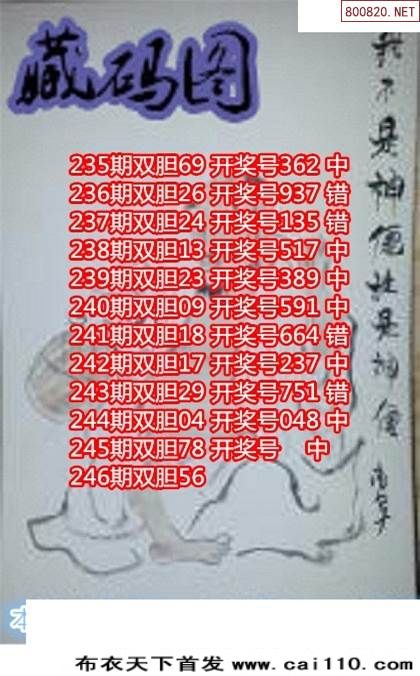 800820.NET
藏码图
235期双胆69 开奖号362 中
236期双胆26 开奖号937 错
237期双胆24 开奖号135 错
238期双胆13 开奖号517 中
239期双胆23 开奖号389 中
240期双胆09 开奖号591 中
241期双胆18 开奖号664 错
242期双胆17 开奖号237 中
243期双胆29 开奖号751 错
244期双胆04 开奖号048 中
245期双胆78 开奖号 中
246期双胆56
我不是神便让是神便
布衣天下首发 www.cai110.com